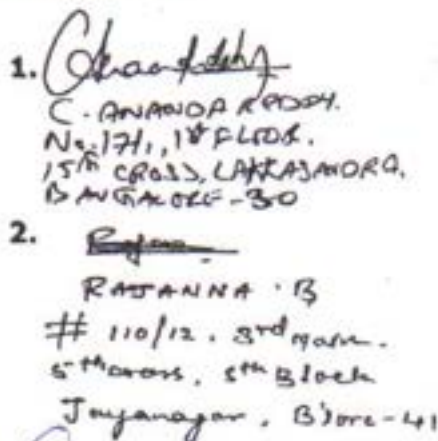 1.
C. ANANDA REDDY.
No. 171, 1st FLOOR.
15th CROSS, LAKKASANDRA,
BANGALORE-30
2.
RAJANNA . B
# 110/12. 3rd main.
5th cross, 5th Block
Jayanagar, B'lore-41